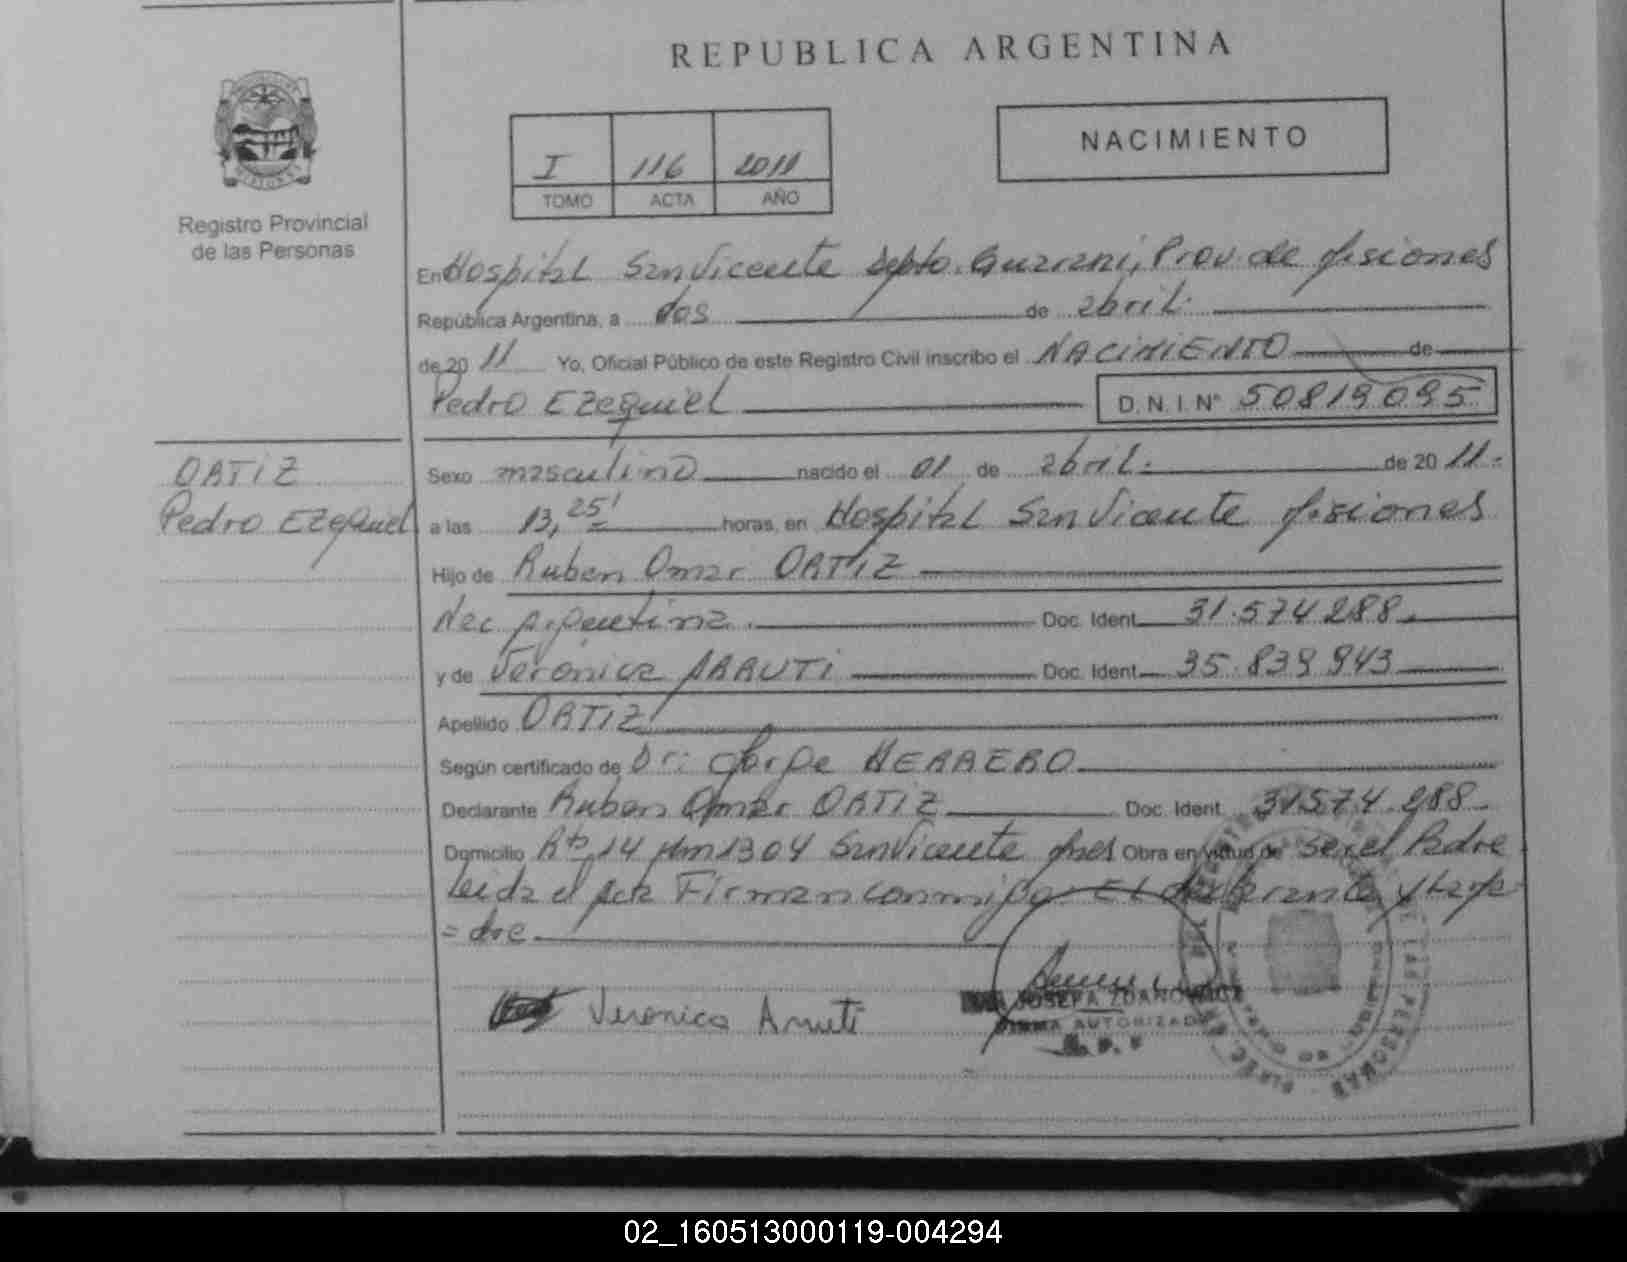 REPUBLICA ARGENTINA
NACIMIENTO
I 116 2011
TOMO ACTA AÑO
Registro Provincial
de las Personas
En Hospital San Vicente Depto. Guarani, Prov. de Misiones
República Argentina, a dos de abril.
de 2011 Yo, Oficial Público de este Registro Civil inscribo el NACIMIENTO de
Pedro Ezequiel D.N.I. Nº 50819095
ORTIZ
Pedro Ezequiel
Sexo masculino nacido el 01 de abril. de 2011.
a las 13,25' horas, en Hospital San Vicente Misiones
Hijo de Ruben Omar ORTIZ
Nac Argentina. Doc. Ident. 31.574.288.
y de Verónica ARRUTI Doc. Ident. 35.839.943
Apellido ORTIZ
Según certificado de Dr: Jorge HERRERO
Declarante Ruben Omar ORTIZ Doc. Ident. 31574.288
Domicilio Rta 14 Km 1304 San Vicente Mnes Obra en virtud de ser el Padre
Leida el Acta Firman conmigo El declarante y la Ma
= dre
Veronica Arruti
JOSEFA ZDANOWICZ
FIRMA AUTORIZADA
02_160513000119-004294